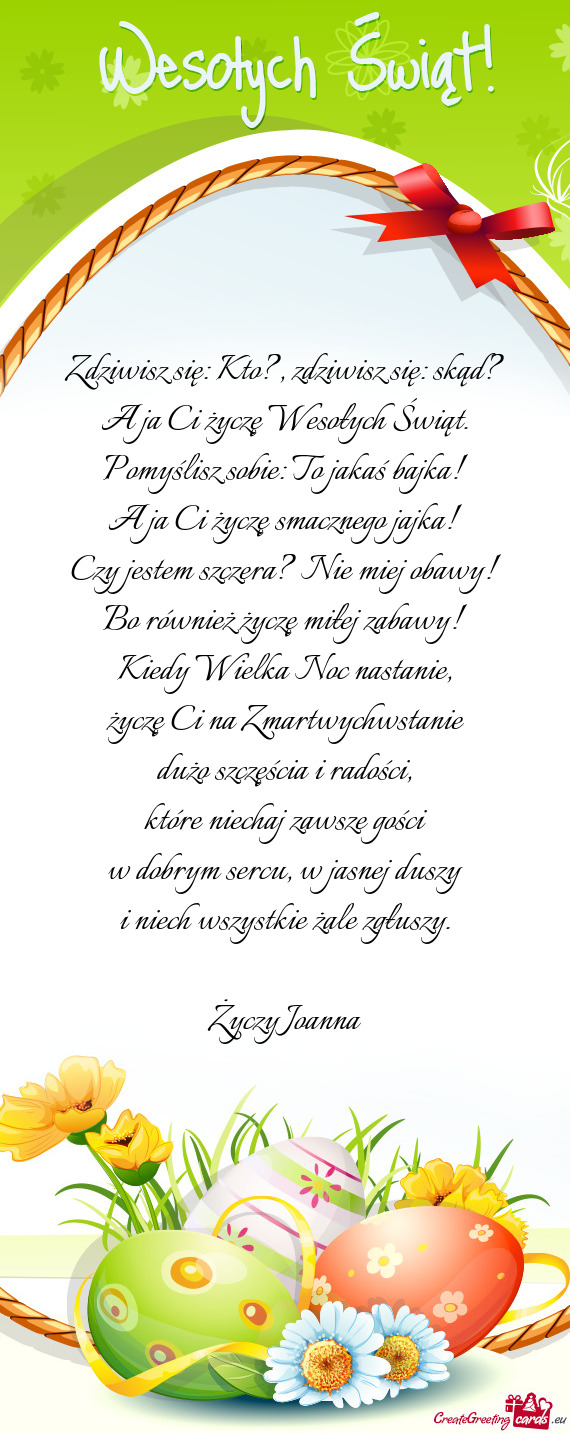 Wesołych Świąt!
Zdziwisz się: Kto? , zdziwisz się: skąd?
A ja Ci życzę Wesołych Świąt.
Pomyślisz sobie: To jakaś bajka!
A ja Ci życzę smacznego jajka!
Czy jestem szczera? Nie miej obawy!
Bo również życzę miłej zabawy!
Kiedy Wielka Noc nastanie,
życzę Ci na Zmartwychwstanie
dużo szczęścia i radości,
które niechaj zawsze gości
w dobrym sercu, w jasnej duszy
i niech wszystkie żale zgłuszy.
Życzy Joanna
CreateGreeting cards .eu